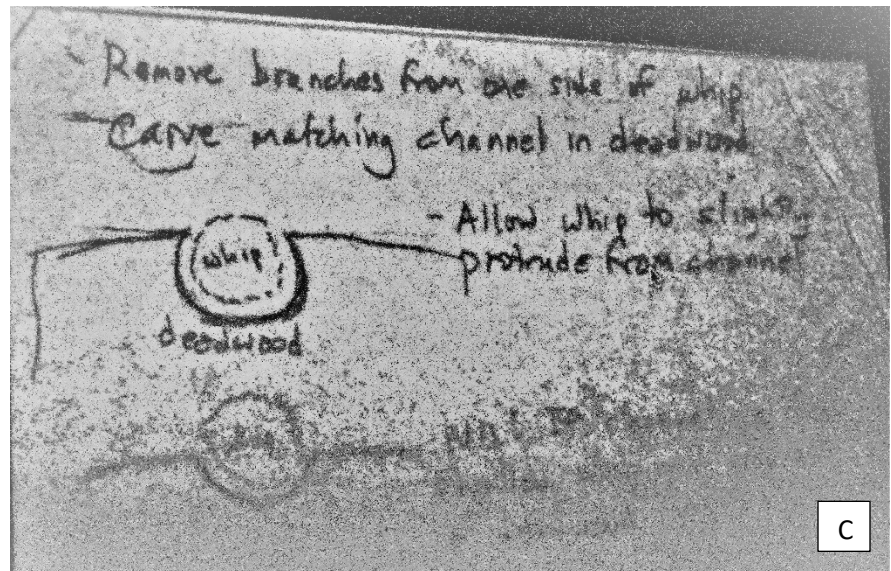 - Remove branches from one side of whip
- Carve matching channel in deadwood
- Allow whip to slightly
protrude from channel
whip
deadwood
C